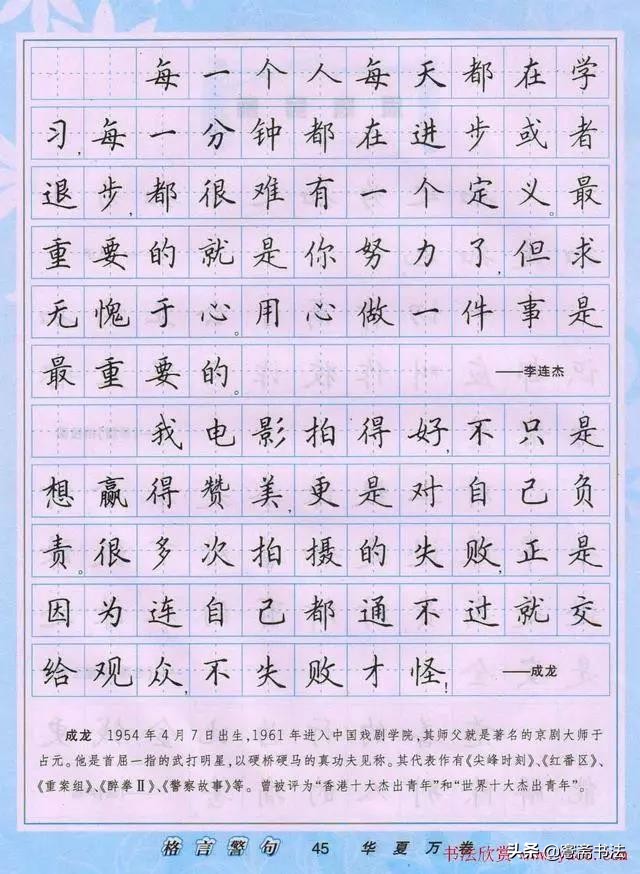 每一个人每天都在学
习,每一分钟都在进步或者
退步,都很难有一个定义。最
重要的就是你努力了,但求
无愧于心。用心做一件事是
最重要的。——李连杰
我电影拍得好,不只是
想赢得赞美,更是对自己负
责。很多次拍摄的失败,正是
因为连自己都通不过就交
给观众,不失败才怪!——成龙
成龙 1954年4月7日出生,1961年进入中国戏剧学院,其师父就是著名的京剧大师于
占元。他是首屈一指的武打明星,以硬桥硬马的真功夫见称。其代表作有《尖峰时刻》、《红番区》、
《重案组》、《醉拳Ⅱ》、《警察故事》等。曾被评为“香港十大杰出青年”和“世界十大杰出青年”。
格言警句 45 华夏万卷
书法欣赏
头条@鸳斋书法